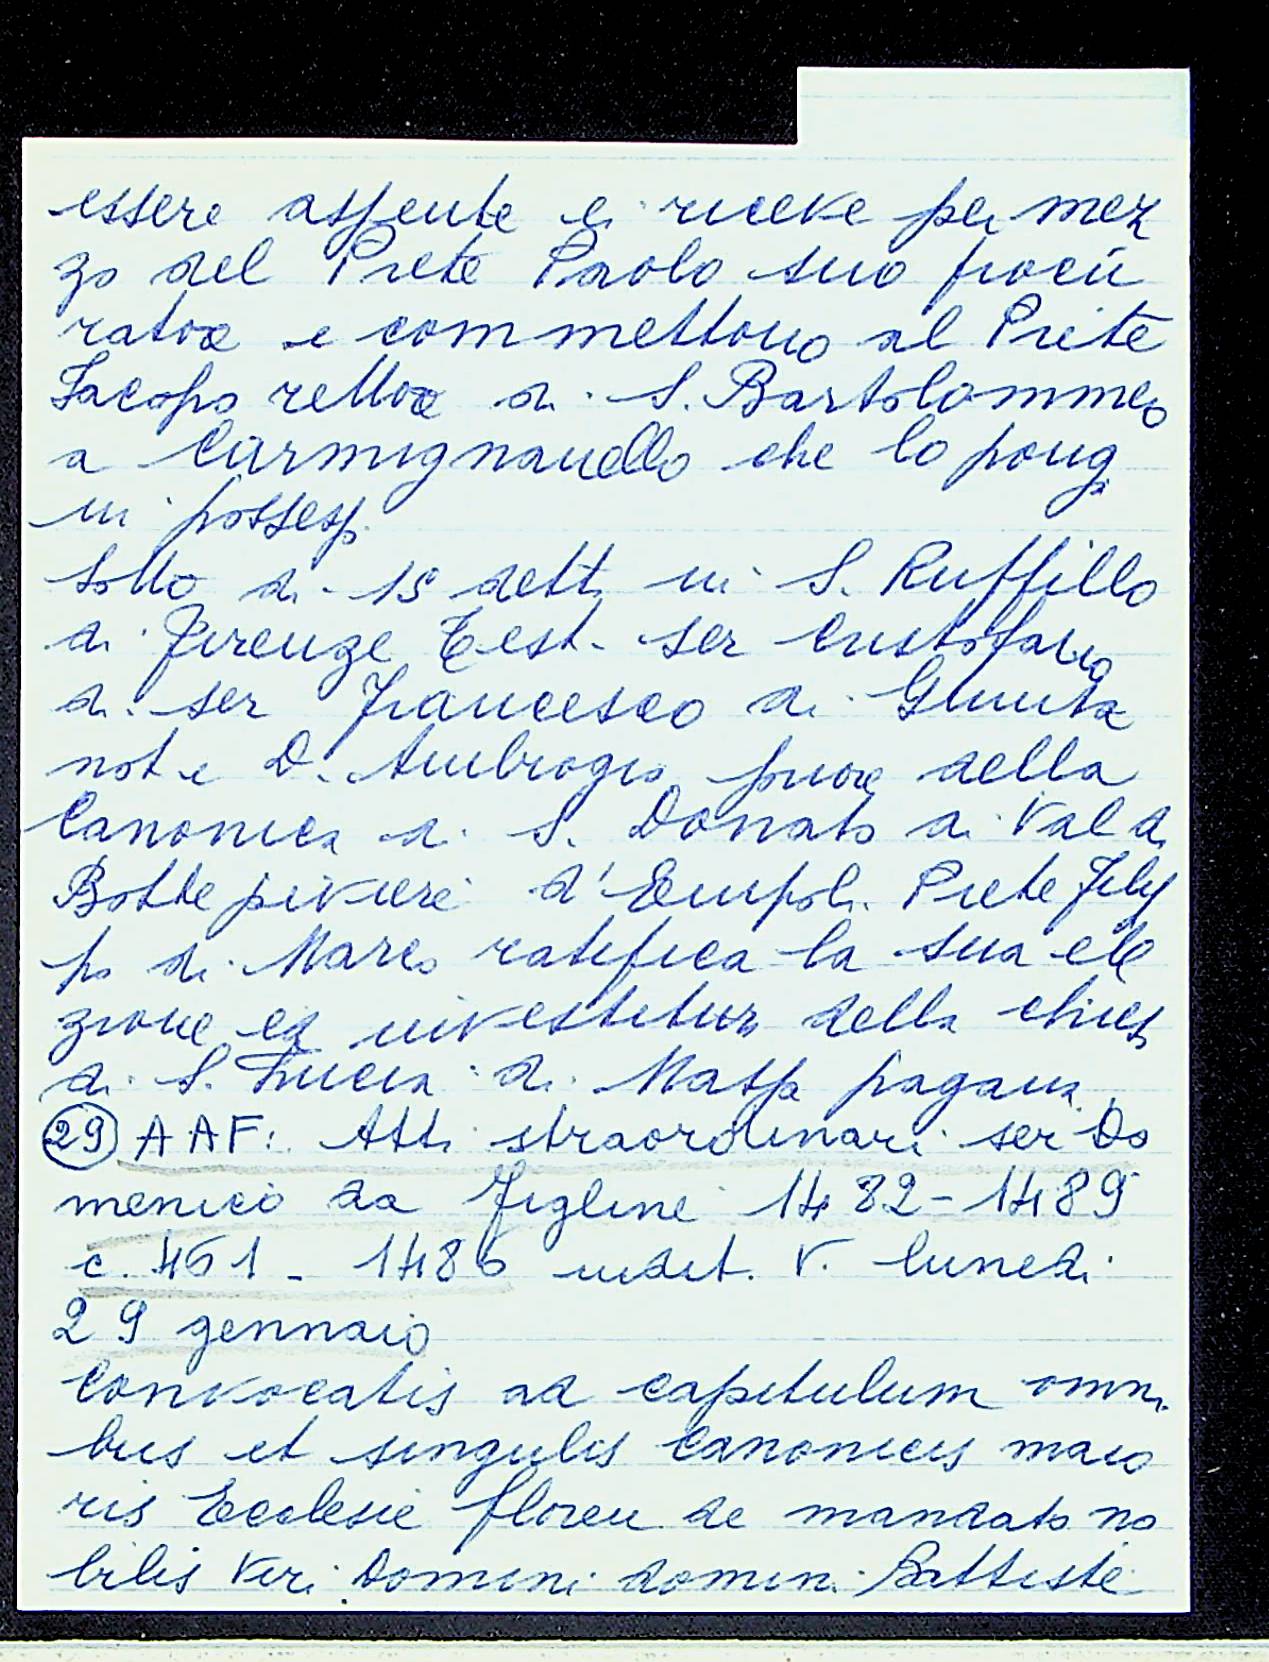 essere assente e riceve per mez
zo del Prete Paolo suo procu
ratore e commettono al Prete
Iacopo rettore di S. Bartolommeo
a Carmignanello che lo ponga
in possesso.
Sotto di 15 detto in S. Ruffillo
di Firenze Test. ser Cristofano
di ser Francesco di Giunta
not. e D. Ambrogio priore della
Canonica di S. Donato a Val di
Botte piviere d'Empoli. Prete Filip
po di Marco ratifica la sua ele
zione ed investitura della chiesa
di S. Lucia di Massa pagani
29 AAF: Atti straordinari ser Do
menico da Figline 1482-1489
c. 461 - 1486 indit. V. lunedi
29 gennaio
Convocatis ad capitulum omni
bus et singulis Canonicis maio
ris Ecclesie floren de mandato no
bilis Viri Domini domini Battiste